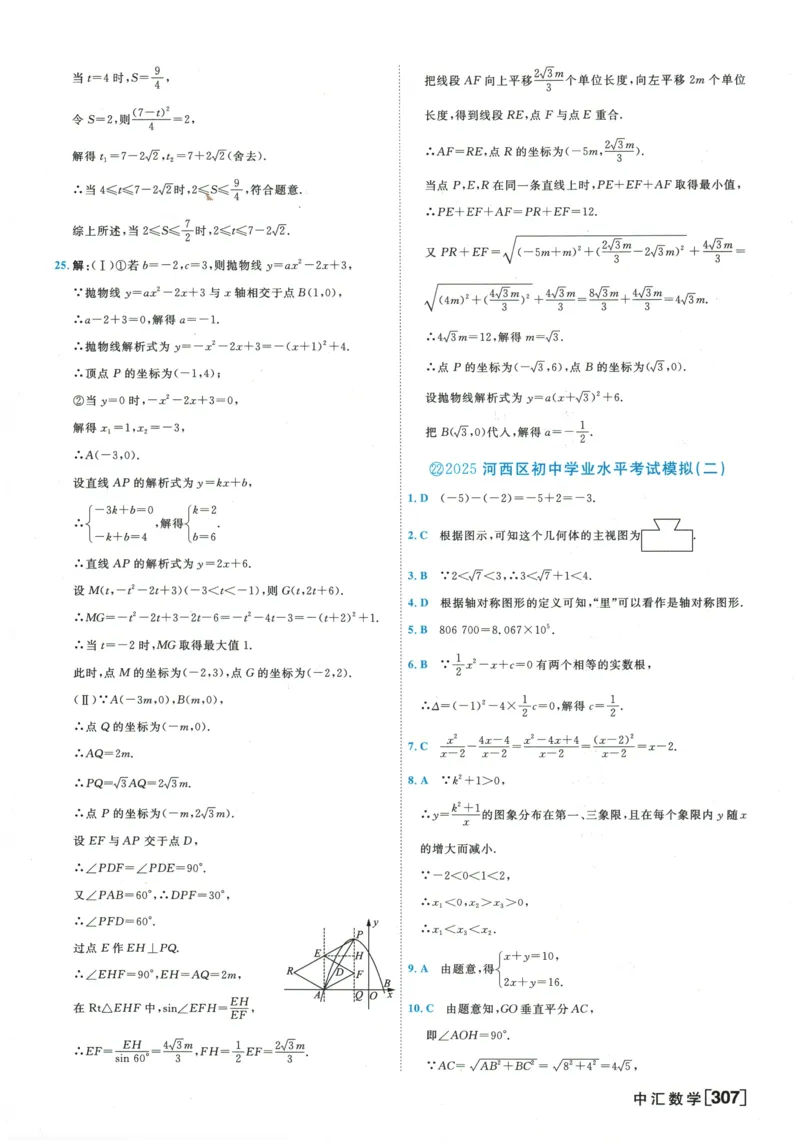 当t=4时,S=9/4,
令S=2,则(7-t)²/4=2,
解得t₁=7-2√2,t₂=7+2√2(舍去).
∴当4≤t≤7-2√2时,2≤S≤9/4,符合题意.
综上所述,当2≤S≤7/2时,2≤t≤7-2√2.
25.解:(Ⅰ)①若b=-2,c=3,则抛物线y=ax²-2x+3,
∵抛物线y=ax²-2x+3与x轴相交于点B(1,0),
∴a-2+3=0,解得a=-1.
∴抛物线解析式为y=-x²-2x+3=-(x+1)²+4.
∴顶点P的坐标为(-1,4);
②当y=0时,-x²-2x+3=0,
解得x₁=1,x₂=-3,
∴A(-3,0).
设直线AP的解析式为y=kx+b,
∴{-3k+b=0 -k+b=4,解得{k=2 b=6.
∴直线AP的解析式为y=2x+6.
设M(t,-t²-2t+3)(-3<t<-1),则G(t,2t+6).
∴MG=-t²-2t+3-2t-6=-t²-4t-3=-(t+2)²+1.
∴当t=-2时,MG取得最大值1.
此时,点M的坐标为(-2,3),点G的坐标为(-2,2).
(Ⅱ)∵A(-3m,0),B(m,0),
∴点Q的坐标为(-m,0).
∴AQ=2m.
∴PQ=√3AQ=2√3m.
∴点P的坐标为(-m,2√3m).
设EF与AP交于点D,
∴∠PDF=∠PDE=90°.
又∠PAB=60°,∴DPF=30°,
∴∠PFD=60°.
过点E作EH⊥PQ.
∴∠EHF=90°,EH=AQ=2m,
在Rt△EHF中,sin∠EFH=EH/EF,
∴EF=EH/sin 60°=4√3m/3,FH=1/2EF=2√3m/3.
y
P
E
H
R
D
F
A
Q
O
B
x
把线段AF向上平移2√3m/3个单位长度,向左平移2m个单位
长度,得到线段RE,点F与点E重合.
∴AF=RE,点R的坐标为(-5m,2√3m/3).
当点P,E,R在同一条直线上时,PE+EF+AF取得最小值,
∴PE+EF+AF=PR+EF=12.
又PR+EF=√((-5m+m)²+(2√3m/3-2√3m)²)+4√3m/3=
√((4m)²+(4√3m/3)²)+4√3m/3=8√3m/3+4√3m/3=4√3m.
∴4√3m=12,解得m=√3.
∴点P的坐标为(-√3,6),点B的坐标为(√3,0).
设抛物线解析式为y=a(x+√3)²+6.
把B(√3,0)代人,解得a=-1/2.
㉒2025河西区初中学业水平考试模拟(二)
1.D (-5)-(-2)=-5+2=-3.
2.C 根据图示,可知这个几何体的主视图为.
3.B ∵2<√7<3,∴3<√7+1<4.
4.D 根据轴对称图形的定义可知,“里”可以看作是轴对称图形.
5.B 806 700=8.067×10⁵.
6.B ∵1/2x²-x+c=0有两个相等的实数根,
∴Δ=(-1)²-4×1/2c=0,解得c=1/2.
7.C x²/(x-2)-(4x-4)/(x-2)=(x²-4x+4)/(x-2)=(x-2)²/(x-2)=x-2.
8.A ∵k²+1>0,
∴y=(k²+1)/x的图象分布在第一、三象限,且在每个象限内y随x
的增大而减小.
∵-2<0<1<2,
∴x₁<0,x₂>x₃>0,
∴x₁<x₃<x₂.
9.A 由题意,得{x+y=10, 2x+y=16.
10.C 由题意知,GO垂直平分AC,
即∠AOH=90°.
∵AC=√(AB²+BC²)=√(8²+4²)=4√5,
中汇数学[307]